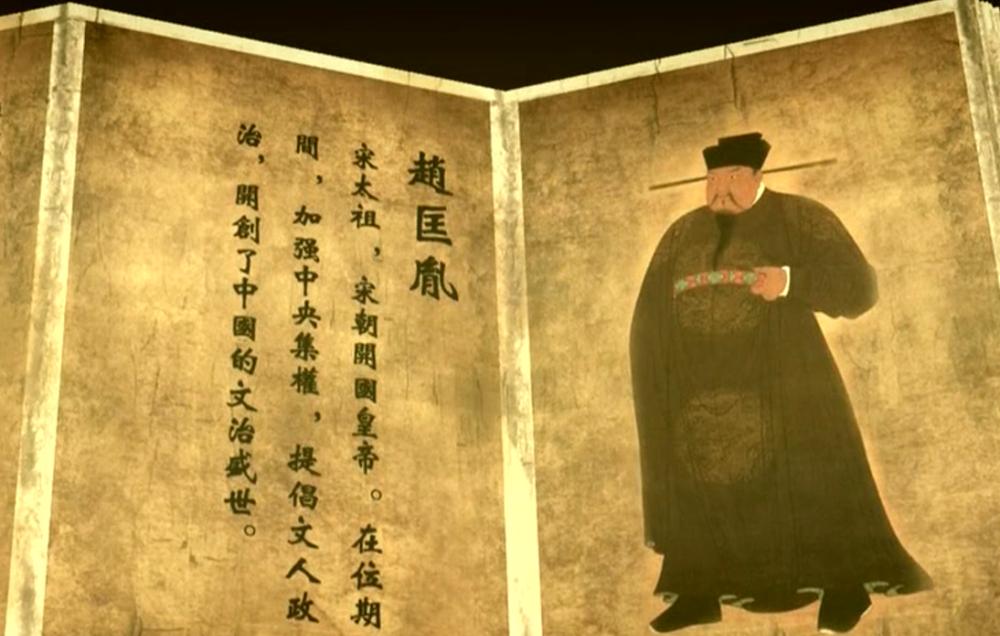 趙匡胤
宋太祖，宋朝開國皇帝。在位期
間，加强中央集權，提倡文人政
治，開創了中國的文治盛世。